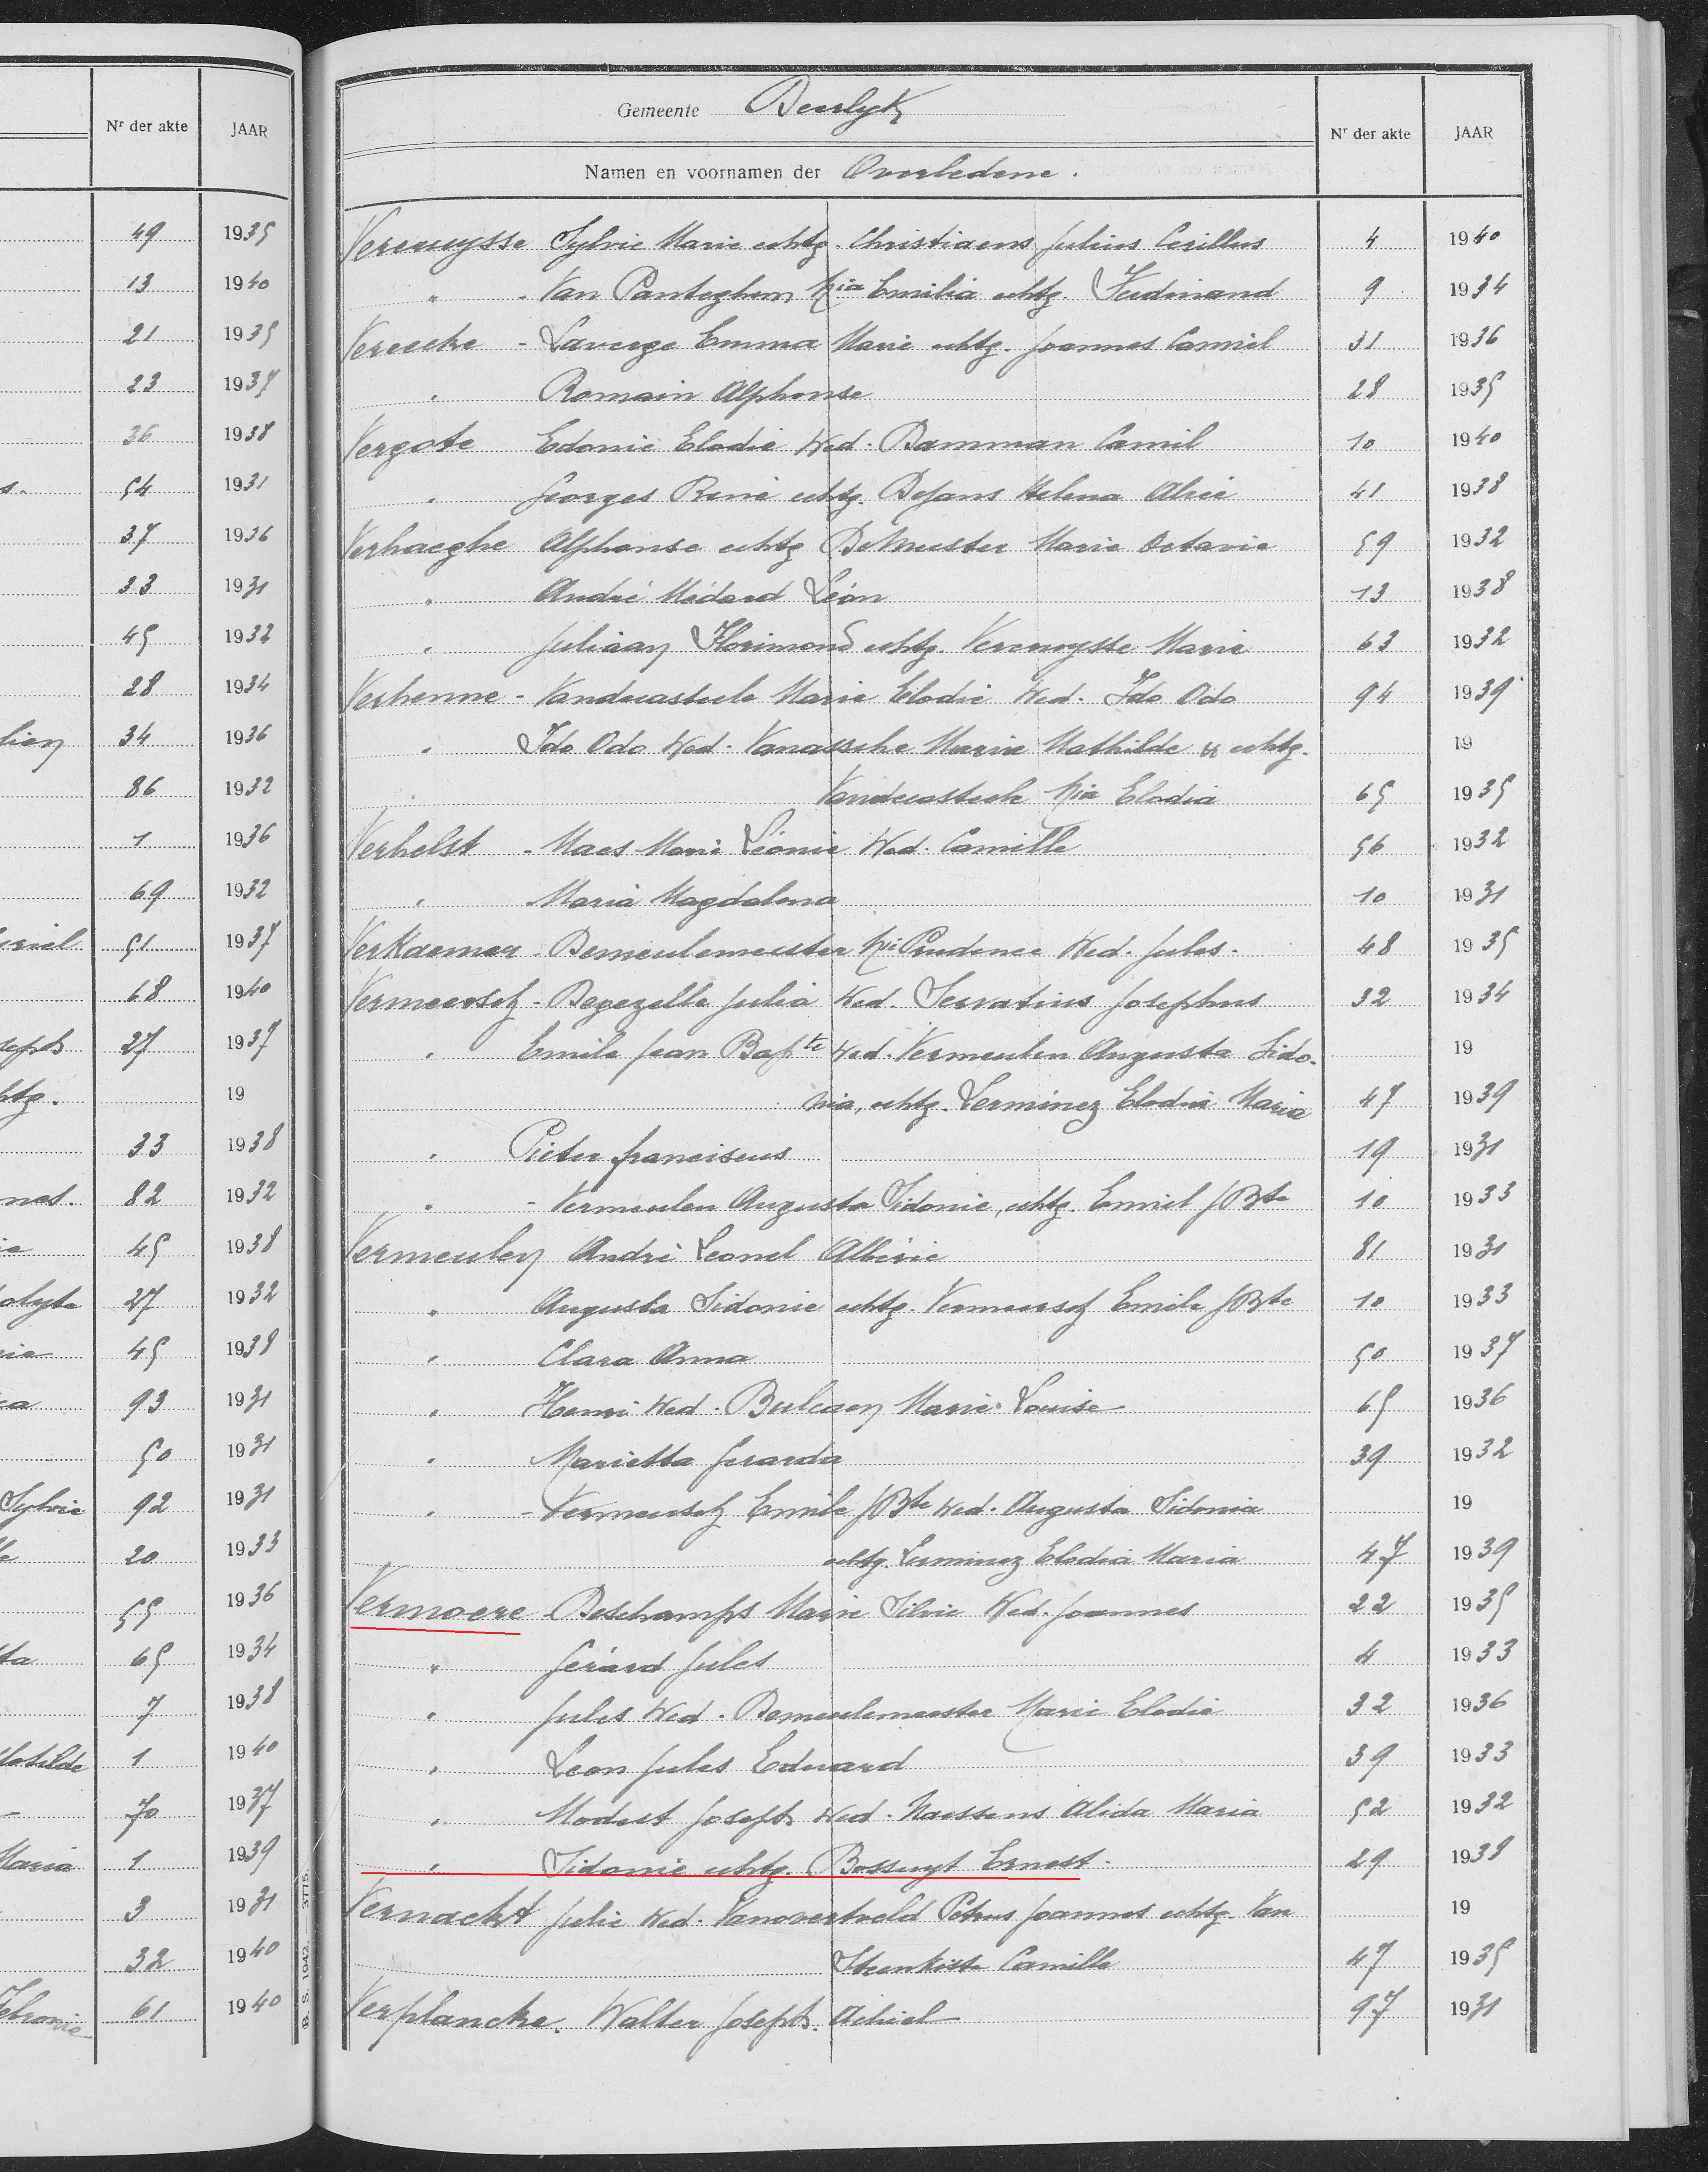 Nr der akte JAAR
49 1935
13 1940
21 1935
23 1937
36 1938
s. 54 1931
37 1936
33 1931
45 1932
28 1934
lien 34 1936
86 1932
1 1936
69 1932
uriel 51 1937
68 1940
seph 27 1937
htg. 19
33 1938
nes. 82 1932
ie 45 1938
olyte 27 1932
rie 45 1938
ca 93 1931
50 1931
Sylvie 92 1931
20 1933
55 1936
ta 65 1934
7 1938
lotilde 1 1940
70 1937
Maria 1 1939
3 1931
32 1940
61 1940
B. S. 1942. — 3775.
Gemeente Deerlyk Nr der akte JAAR
Namen en voornamen der Overledene.
Vercruysse Sylvie Marie echtg. Christiaens Julius Cerillus 4 1940
" - Van Panteghem Mia Emilia echtg. Ferdinand 9 1934
Verecke - Laverge Emma Marie echtg. Joannes Camiel 31 1936
" Romain Alphonse 28 1935
Vergote Edonie Elodie Wed. Damman Camil 10 1940
" Georges René echtg. Dejans Helena Alice 41 1938
Verhaeghe Alphonse echtg DeMeester Marie Octavie 59 1932
" André Médard Léon 13 1938
" Juliaan Florimond echtg. Vercruysse Marie 63 1932
Verhenne - Vandecasteele Marie Elodie Wed. Ido Odo 94 1939
" Ido Odo Wed. Vanassche Maria Mathilde & echtg. 19
Vandecasteele Mia Elodia 65 1935
Verhelst - Maes Marie Léonie Wed. Camille 56 1932
" Maria Magdalena 10 1931
Verkaemer - Demeulemeester Mie Prudence Wed. Jules. 48 1935
Vermeersch - Degezelle Julia Wed. Servatius Josephus 32 1934
" Emile Jean Bapte Wed. Vermeulen Augusta Sido- 19
nia, echtg. Lerminez Elodia Maria 47 1939
" Pieter franciscus 19 1931
" - Vermeulen Augusta Sidonie, echtg Emiel J Bte 10 1933
Vermeulen André Leonel Albéric 81 1931
" Augusta Sidonie echtg. Vermeersch Emile J Bte 10 1933
" Clara Anna 50 1937
" Henri Wed. Bulcaen Marie-Louise 65 1936
" Marietta Gerarda 39 1932
" - Vermeersch Emile J Bte Wed. Augusta Sidonia 19
echtg. Lerminez Elodia Maria 47 1939
Vermoere - Deschamps Marie Silvie Wed. Joannes 22 1935
" Gérard Jules 4 1933
" Jules Wed. Demeulemeester Marie Elodie 32 1936
" Leon Jules Eduard 39 1933
" Modest Joseph Wed. Naessens Alida Maria 52 1932
" Sidonie echtg. Bossuyt Ernest. 29 1938
Vernackt Julie Wed. Vanovertveld Petrus Joannes echtg. Van 19
Steenkiste Camille 47 1935
Verplancke. Walter Joseph. Achiel 97 1931